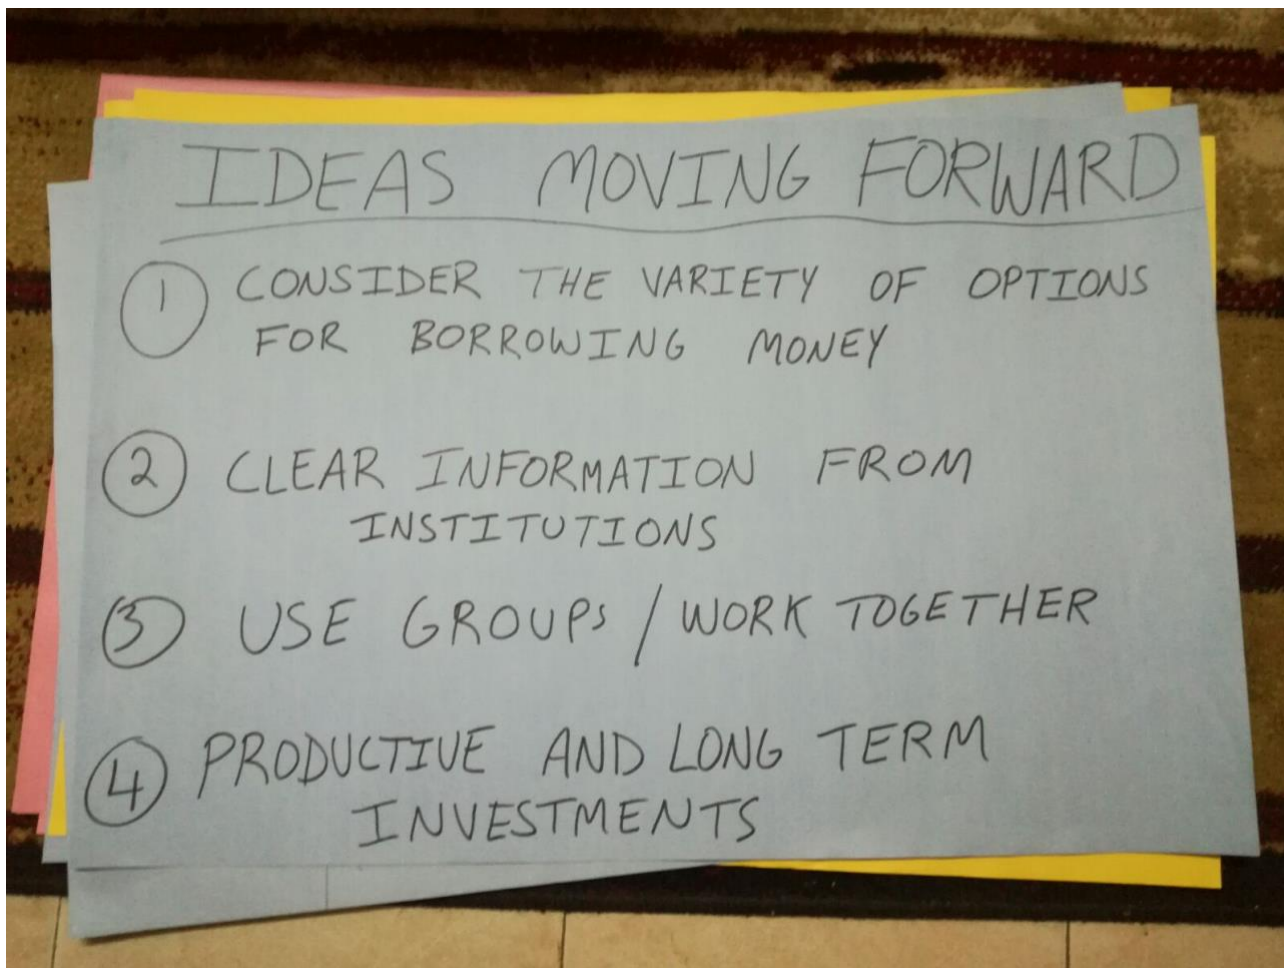 IDEAS MOVING FORWARD
1 CONSIDER THE VARIETY OF OPTIONS
FOR BORROWING MONEY
2 CLEAR INFORMATION FROM
INSTITUTIONS
3 USE GROUPs / WORK TOGETHER
4 PRODUCTIVE AND LONG TERM
INVESTMENTS